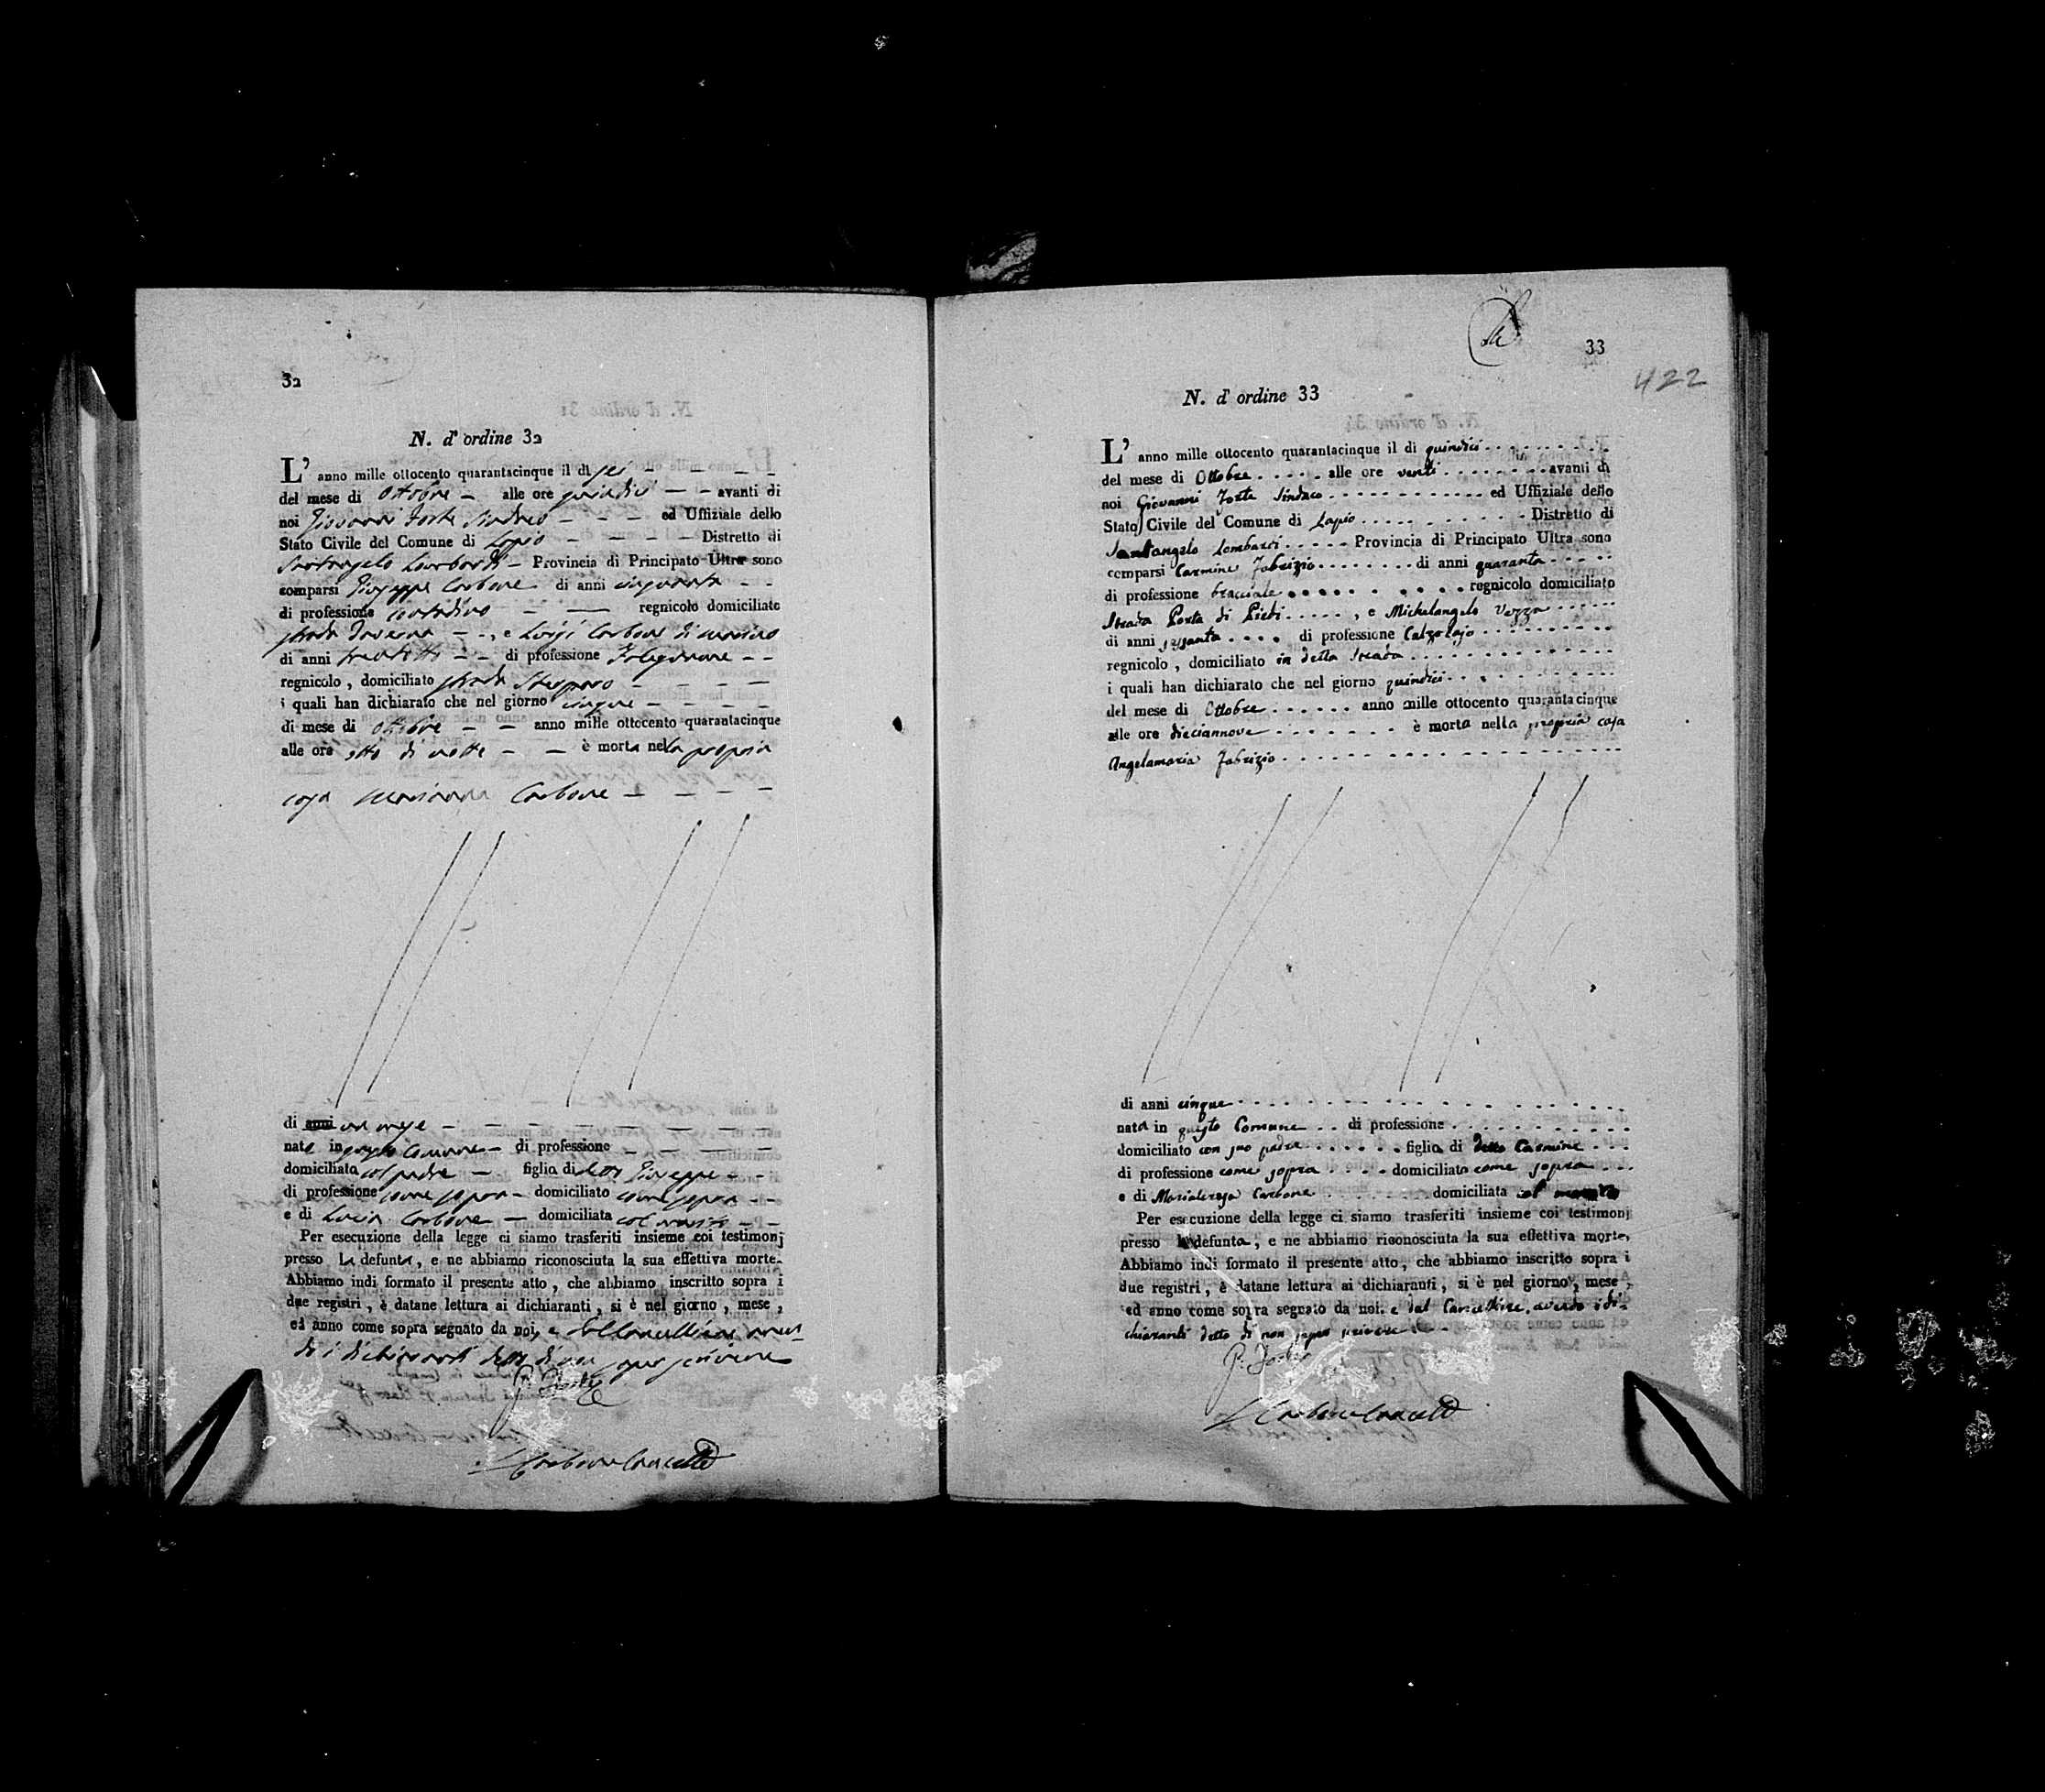 32
N. d' ordine 32
L' anno mille ottocento quarantacinque il dì sei
del mese di Ottobre alle ore quindici avanti di
noi Giovanni Forte Sindaco ed Uffiziale dello
Stato Civile del Comune di Lapio Distretto di
Santangelo Lombardi Provincia di Principato Ultra sono
comparsi Giuseppe Carbone di anni cinquanta
di professione contadino regnicolo domiciliato
strada Taverna , e Luigi Carbone di
di anni trentotto di professione Falegname
regnicolo , domiciliato strada
i quali han dichiarato che nel giorno cinque
di mese di Ottobre anno mille ottocento quarantacinque
alle ore otto di notte è morta nella propria
casa Marianna Carbone
di anni un mese
nata in questo Comune di professione
domiciliata col padre figlia di detto Giuseppe
di professione come sopra domiciliato come sopra
e di Lucia Carbone domiciliata col marito
Per esecuzione della legge ci siamo trasferiti insieme coi testimonj
presso La defunta, e ne abbiamo riconosciuta la sua effettiva morte.
Abbiamo indi formato il presente atto , che abbiamo inscritto sopra i
due registri , è datane lettura ai dichiaranti , si è nel giorno , mese ,
ed anno come sopra segnato da noi, e dal Cancelliere, aven-
do i dichiaranti detto di non saper scrivere
G. Forte
Carbone Cancell
33
422
N. d' ordine 33
L' anno mille ottocento quarantacinque il dì quindici
del mese di Ottobre alle ore venti avanti di
noi Giovanni Forte Sindaco ed Uffiziale dello
Stato Civile del Comune di Lapio Distretto di
Santangelo Lombardi Provincia di Principato Ultra sono
comparsi Carmine Fabrizio di anni quaranta
di professione bracciale regnicolo domiciliato
Strada Porta di Piedi , e Michelangelo Vozza
di anni sessanta di professione Calzolajo
regnicolo , domiciliato in detta Strada
i quali han dichiarato che nel giorno quindici
del mese di Ottobre anno mille ottocento quarantacinque
alle ore diciannove è morta nella propria casa
Angelamaria Fabrizio
di anni cinque
nata in questo Comune di professione
domiciliato con suo padre figlia di detto Carmine
di professione come sopra domiciliato come sopra
e di Mariateresa Carbone domiciliata col marito
Per esecuzione della legge ci siamo trasferiti insieme coi testimonj
presso la defunta, e ne abbiamo riconosciuta la sua effettiva morte,
Abbiamo indi formato il presente atto , che abbiamo inscritto sopra i
due registri , è datane lettura ai dichiaranti , si è nel giorno , mese ,
ed anno come sopra segnato da noi. e dal Cancelliere, avendo i di-
chiaranti detto di non saper scrivere
G. Forte
Carbone Cancell